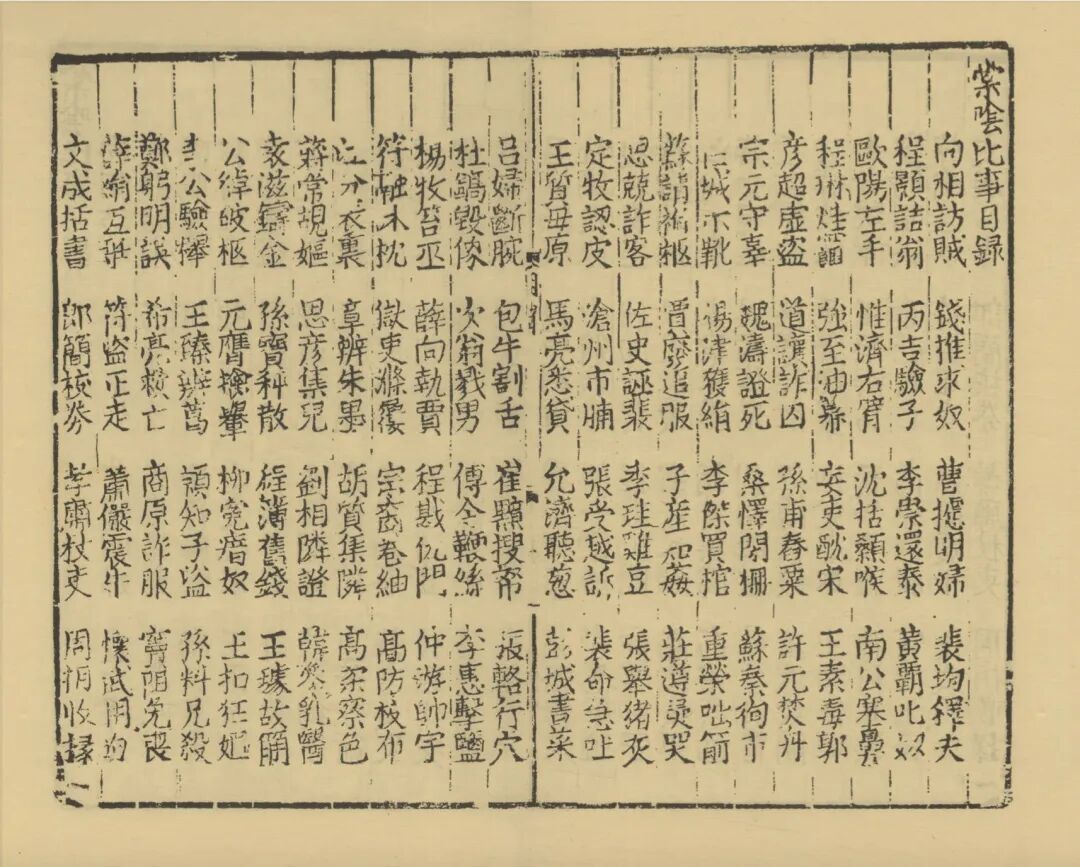 棠陰比事目録
向相訪賊 錢推求奴 曹攄明婦 裴均釋夫
程顥詰翁 丙吉驗子 李崇還泰 黃霸叱姒
歐陽左手 惟濟右臂 沈括顙喉 南公塞鼻
程琳炷竈 強至油幕 妄吏酖宋 王素毒郭
彥超虛盜 道讓詐囚 孫甫舂粟 許元焚舟
宗元守辜 魏濤證死 桑懌閉柵 蘇秦徇市
城不靴 楊津獲絹 李傑買棺 重榮咄箭
柩 追服 子產知姦 莊遵疑哭
思兢詐客 佐史誣裴 季珪雞豆 張舉豬灰
定牧認皮 滄州市脯 張受越訴 裴命急吐
王質母原 馬亮悉貸 允濟聽葱 彭城書菜
呂婦斷腕 包牛割舌 崔黯搜帑 張輅行穴
杜鎬毀像 次翁戮男 傅令鞭絲 李惠擊鹽
楊牧笞巫 薛向執賈 程戡仇門 仲游帥宇
符融沐枕 獄吏滌履 宗裔卷紬 高防校布
江分表裏 章辨朱墨 胡質集隣 高柔察色
蔣常覘嫗 思彥集兒 劉相隣證 韓參乳醫
袁滋鑄金 孫寶秤散 程簿舊錢 王璩故門
公綽破柩 元膺擒轝 柳冤瘖奴 王扣狂嫗
李公驗櫸 王臻辨葛 潁知子盜 孫料兄殺
鄭躬明誤 希亮救亡 商原詐服 竇阻免喪
薛絹互爭 符盜並走 蕭儼震牛 懷武用狗
文成括書 郎簡校券 孝肅杖吏 周相收掾